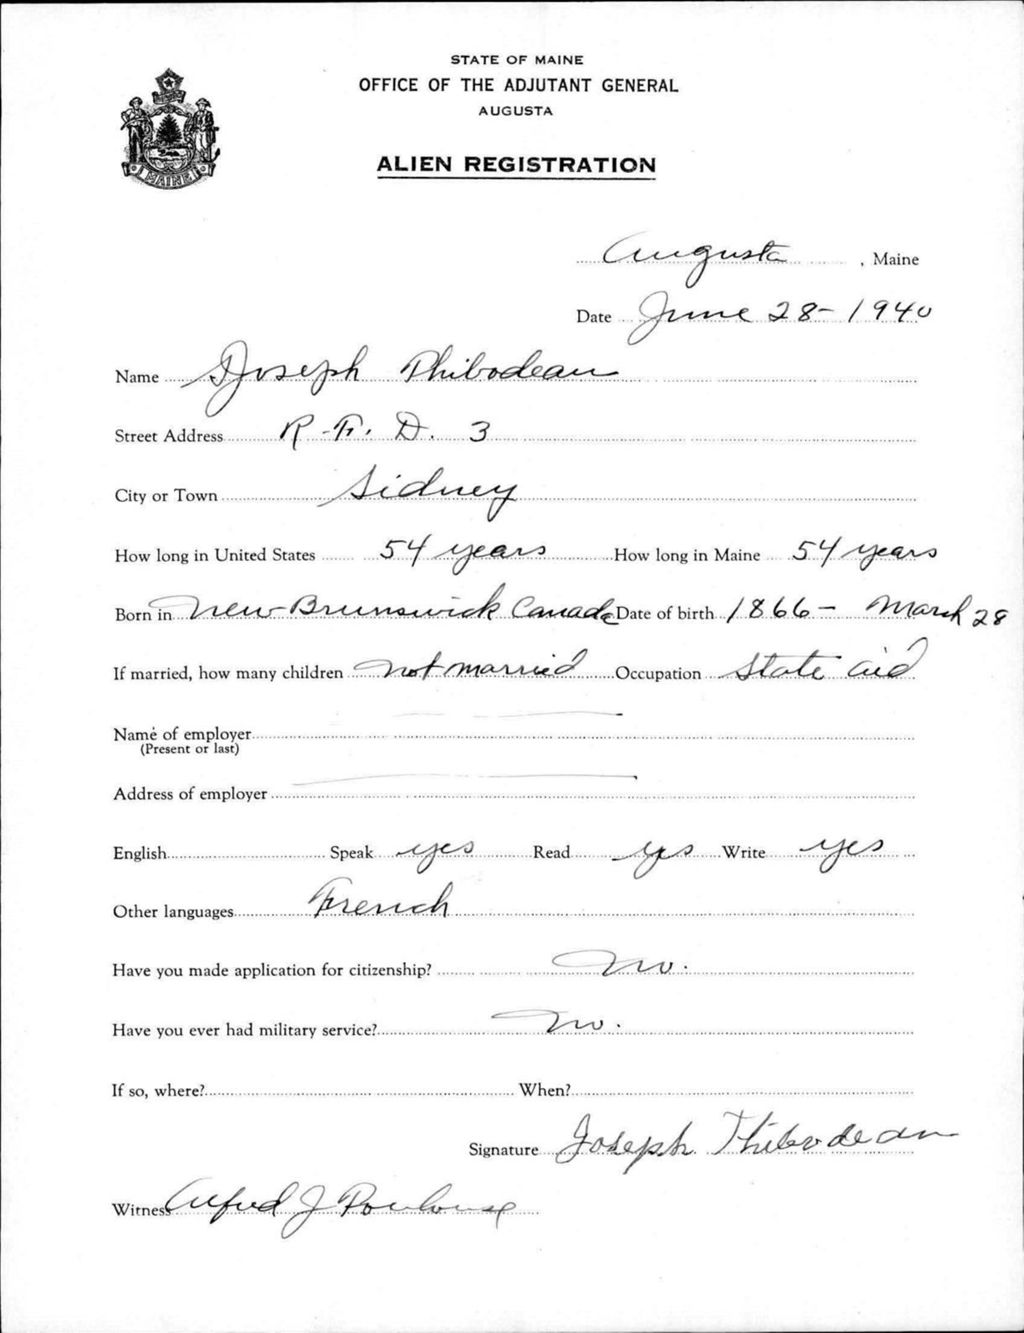 STATE OF MAINE
OFFICE OF THE ADJUTANT GENERAL
AUGUSTA
ALIEN REGISTRATION
MAINE
Augusta, Maine
Date June 28-1940
Name Joseph Thibodeau
Street Address R.F.D. 3
City or Town Sidney
How long in United States 54 years How long in Maine 54 years
Born in New Brunswick Canada Date of birth 1866 - March 28
If married, how many children not married Occupation State aid
Name of employer
(Present or last)
Address of employer
English Speak yes Read yes Write yes
Other languages French
Have you made application for citizenship? No.
Have you ever had military service? No.
If so, where? When?
Signature Joseph Thibodeau
Witness Alfred J